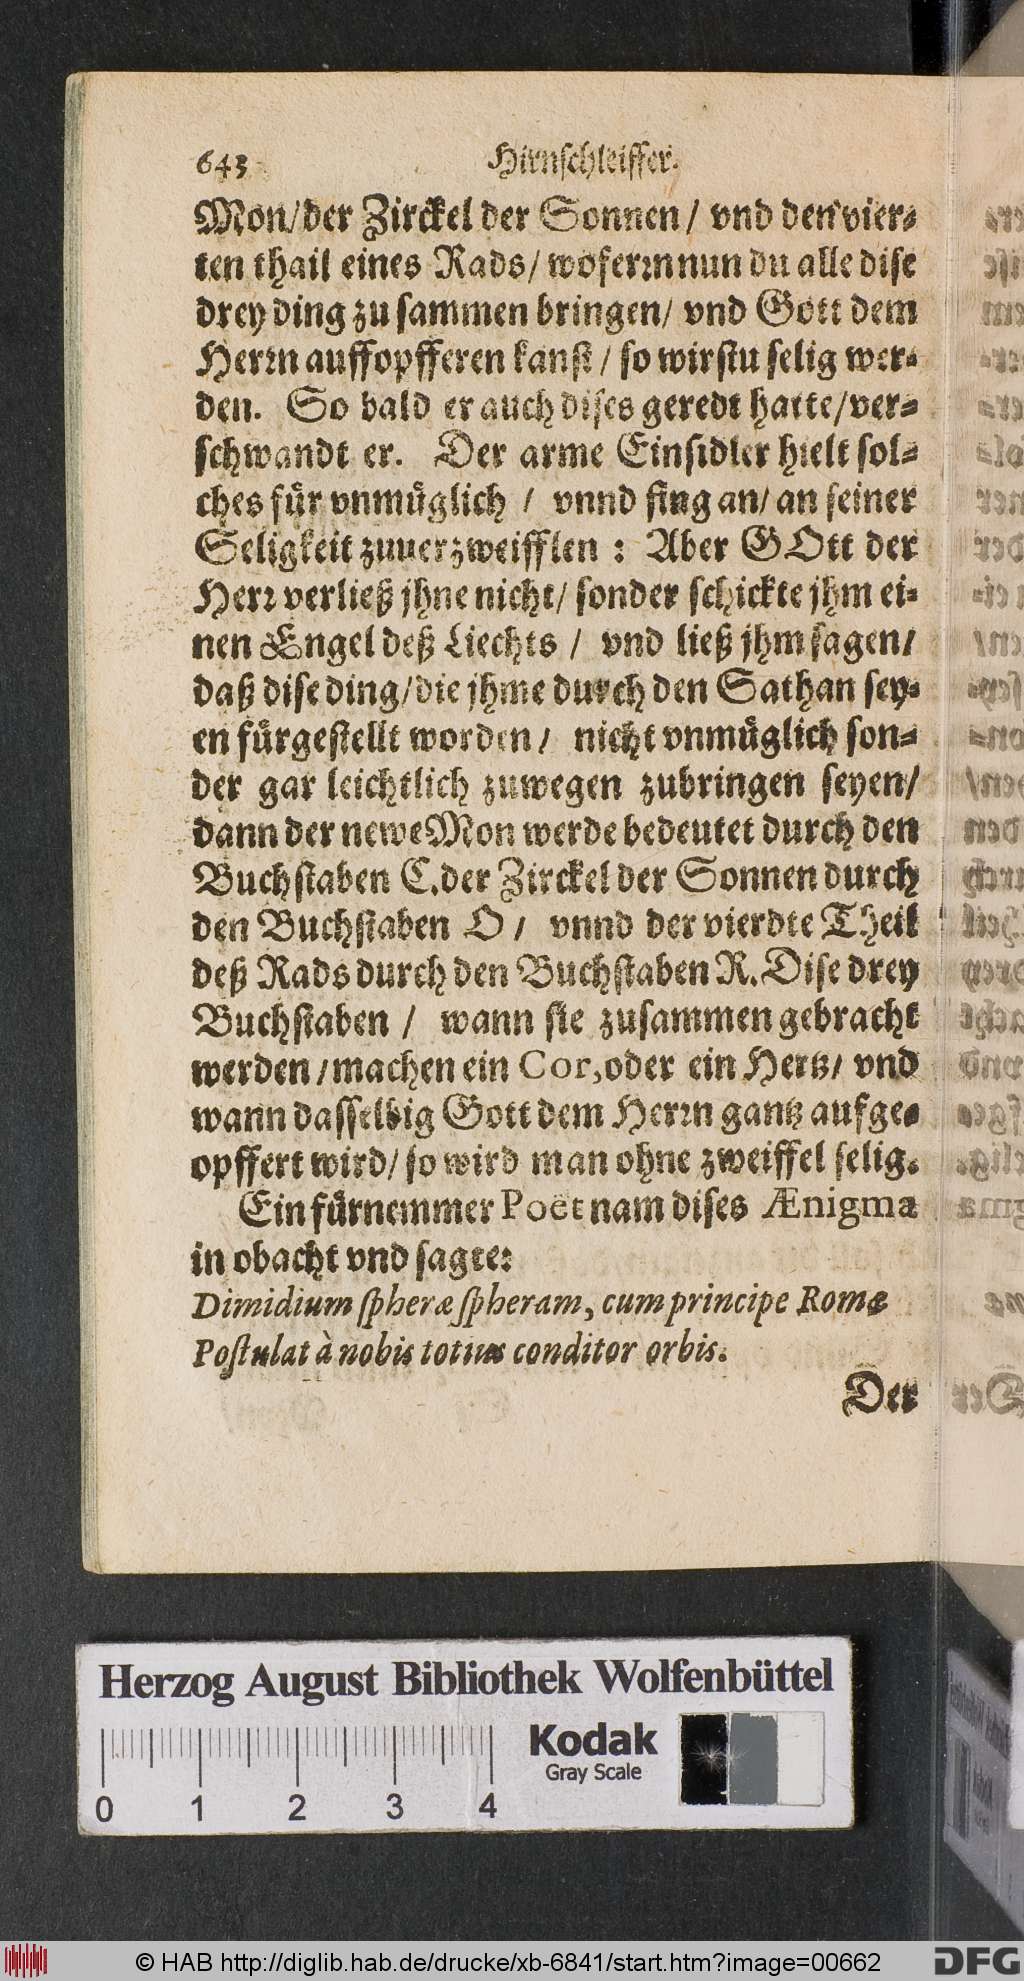 643 Hirnschleiffer.
Mon/ der Zirckel der Sonnen / vnd den vier⸗
ten thail eines Rads/ woferꝛn nun du alle dise
drey ding zu sammen bringen/ vnd Gott dem
Herꝛn auffopfferen kanst / so wirstu selig wer⸗
den. So bald er auch dises geredt hatte/ ver⸗
schwandt er. Der arme Einsidler hielt sol⸗
ches für vnmüglich / vnnd fing an/ an seiner
Seligkeit zuuerzweifflen : Aber GOtt der
Herꝛ verließ jhne nicht/ sonder schickte jhm ei⸗
nen Engel deß Liechts / vnd ließ jhm sagen/
daß dise ding/ die jhme durch den Sathan sey⸗
en fürgestellt worden / nicht vnmüglich son⸗
der gar leichtlich zuwegen zubringen seyen/
dann der newe Mon werde bedeutet durch den
Buchstaben C. der Zirckel der Sonnen durch
den Buchstaben O / vnnd der vierdte Theil
deß Rads durch den Buchstaben R. Dise drey
Buchstaben / wann sie zusammen gebracht
werden / machen ein Cor, oder ein Hertz/ vnd
wann dasselbig Gott dem Herꝛn gantz aufge⸗
opffert wird/ so wird man ohne zweiffel selig.
Ein fürnemmer Poët nam dises Ænigma
in obacht vnd sagte:
Dimidium spheræ spheram, cum principe Romæ
Postulat à nobis totus conditor orbis.
Der
Herzog August Bibliothek Wolfenbüttel
Kodak
Gray Scale
0 1 2 3 4
© HAB http://diglib.hab.de/drucke/xb-6841/start.htm?image=00662
DFG